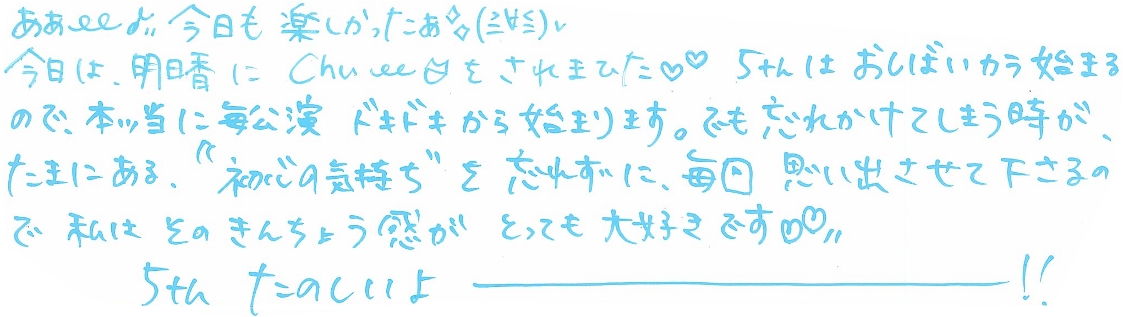 ああぁぁ♪,, 今日も楽しかったあ◇◇(≧∀≦)ν
今日は、明日香にChuぅぅ♡をされまひた♡♡ 5thはおしばいから始まる
ので、本ッ当に毎公演 ドキドキから始まります。でも忘れかけてしまう時が、
たまにある、“初心の気持ち”を忘れずに、毎回 思い出させて下さるの
で 私は そのきんちょう感が とっても大好きです♡♡,,
5th たのしいよ――――――!!